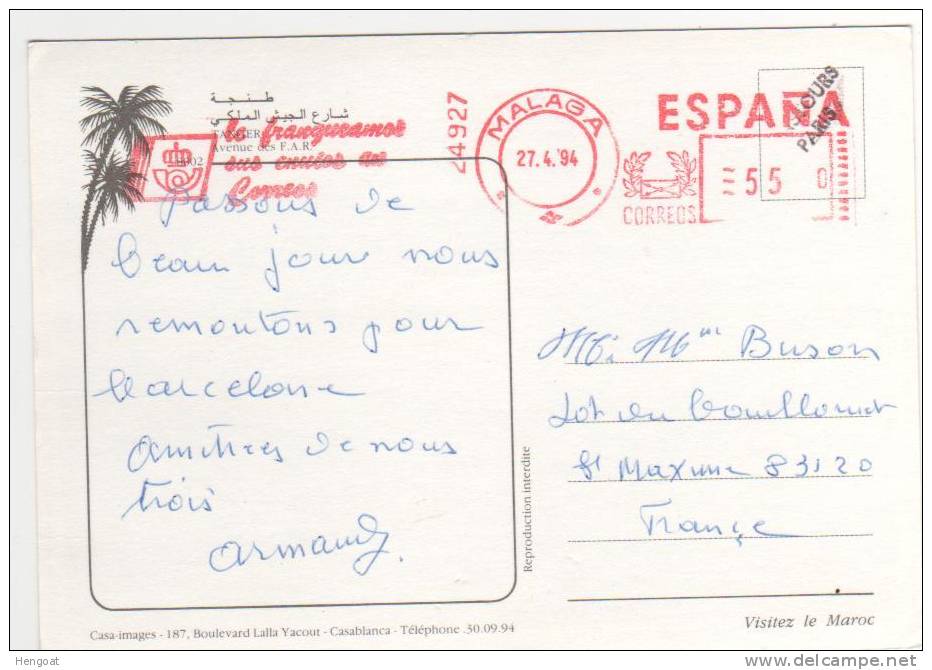 طنجة
شارع الجيش الملكي
TANGER
Avenue des F.A.R.
Le franqueamos
sus envíos en
Correos
24927
MALAGA
27.4.'94
CORREOS
ESPAÑA
=55 0
COURS
PARIS
Passons de
beau jour nous
remontons pour
Barcelone
amitiés de nous
trois
Armand.
Mr Mme Buson
Lot du
St Maxime 83120
France
Reproduction interdite
Casa-images - 187, Boulevard Lalla Yacout - Casablanca - Téléphone .30.09.94
Visitez le Maroc
Hengoat
delcampe.net